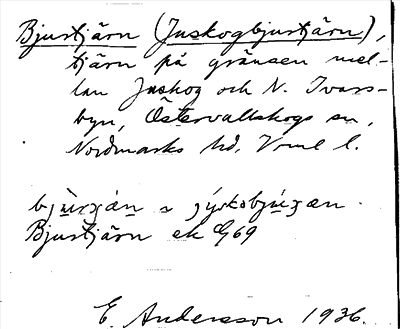 Bjustjärn (Juskogbjustjärn),
tjärn på gränsen mel-
lan Juskog och N. Ivars-
byn, Östervallskogs sn,
Nordmarks hd, Vrml l.
Bjustjärn ek G69
E. Andersson 1936.